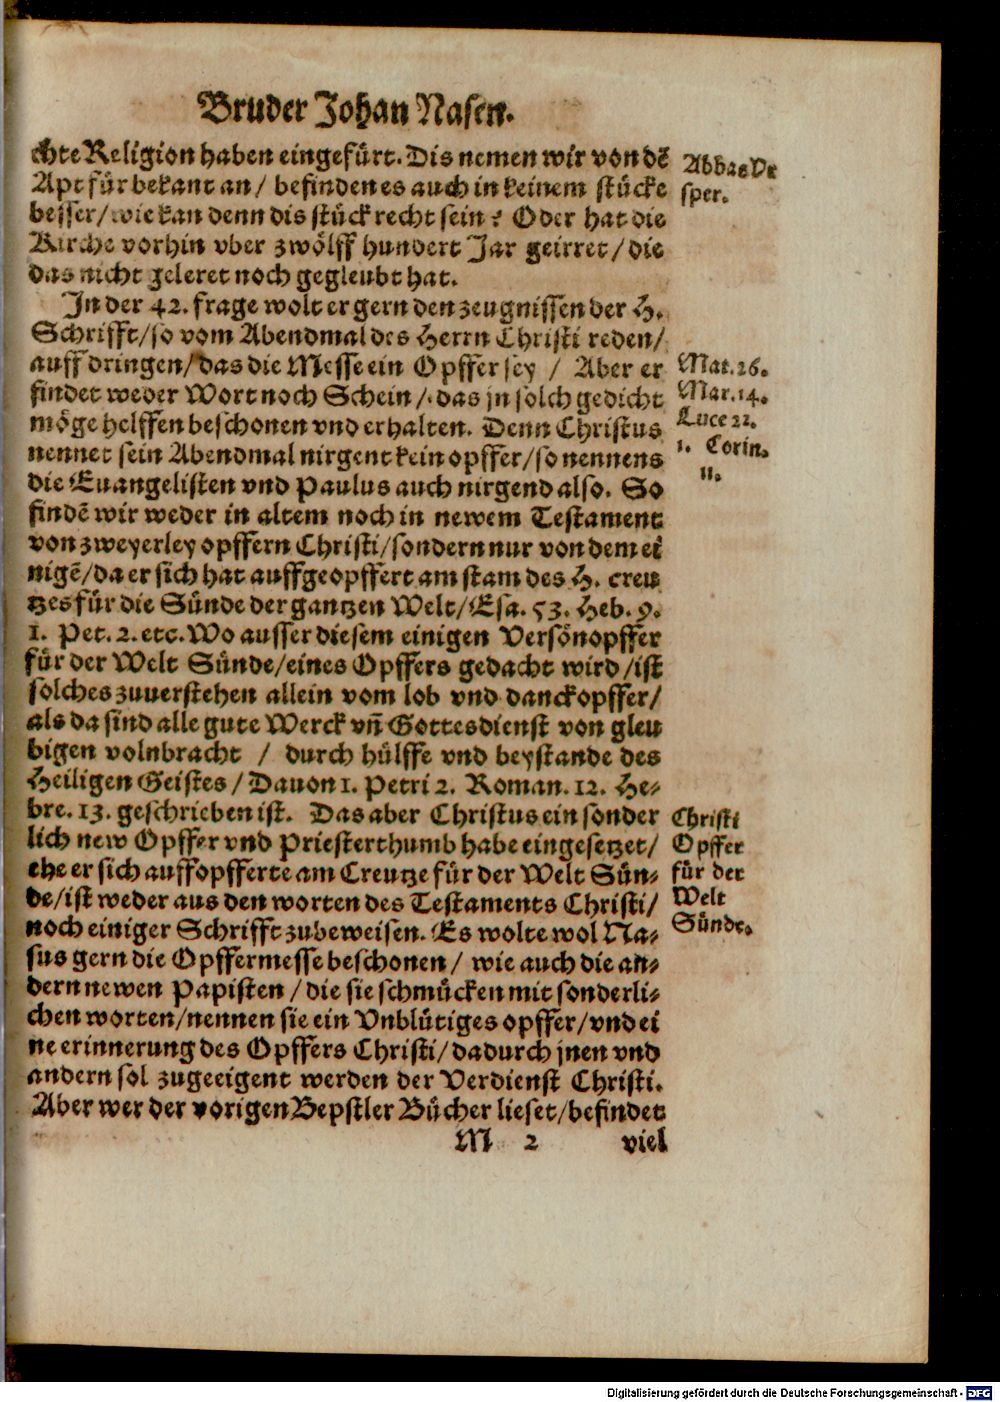 Bruder Johan Nasen.
chte Religion haben eingefürt. Dis nemen wir von dẽ
Apt für bekant an / befinden es auch in keinem stücke
besser / wie kan denn dis stück recht sein? Oder hat die
Kirche vorhin vber zwölff hundert Jar geirret / die
das nicht geleret noch gegleubt hat.
In der 42. frage wolt er gern den zeugnissen der H.
Schrifft / so vom Abendmal des Herrn Christi reden /
auff dringen / das die Messe ein Opffer sey / Aber er
findet weder Wort noch Schein / das jn solch gedicht
möge helffen beschonen vnd erhalten. Denn Christus
nennet sein Abendmal nirgent kein opffer / so nennens
die Euangelisten vnd Paulus auch nirgend also. So
findẽ wir weder in altem noch in newem Testament
von zweyerley opffern Christi / sondern nur von dem ei
nigẽ / da er sich hat auffgeopffert am stam des H. creu
tzes für die Sünde der gantzen Welt / Esa. 53. Heb. 9.
1. Pet. 2. etc. Wo ausser diesem einigen Versönopffer
für der Welt Sünde / eines Opffers gedacht wird / ist
solches zuuerstehen allein vom lob vnd danckopffer /
als da sind alle gute Werck vñ Gottesdienst von gleu
bigen volnbracht / durch hülffe vnd beystande des
Heiligen Geistes / Dauon 1. Petri 2. Roman. 12. He-
bre. 13. geschrieben ist. Das aber Christus ein sonder
lich new Opffer vnd Priesterthumb habe eingesetzet /
ehe er sich auffopfferte am Creutze für der Welt Sün-
de / ist weder aus den worten des Testaments Christi /
noch einiger Schrifft zubeweisen. Es wolte wol Na-
sus gern die Opffermesse beschonen / wie auch die an-
dern newen Papisten / die sie schmücken mit sonderli-
chen worten / nennen sie ein Vnblütiges opffer / vnd ei
ne erinnerung des Opffers Christi / dadurch jnen vnd
andern sol zugeeigent werden der Verdienst Christi.
Aber wer der vorigen Bepstler Bücher lieset / befindet
M 2 viel
Abbas Vr
sper.
Mat. 26.
Mar. 14.
Luce 22.
1. Corin.
11.
Christi
Opffer
für der
Welt
Sünde.
Digitalisierung gefördert durch die Deutsche Forschungsgemeinschaft - DFG